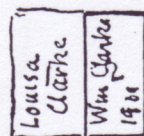 Louisa
Clarke
Wm Clarke
1901